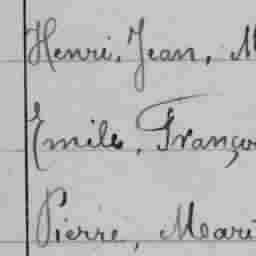 Henri, Jean, M
Emile, Françoi
Pierre, Mari